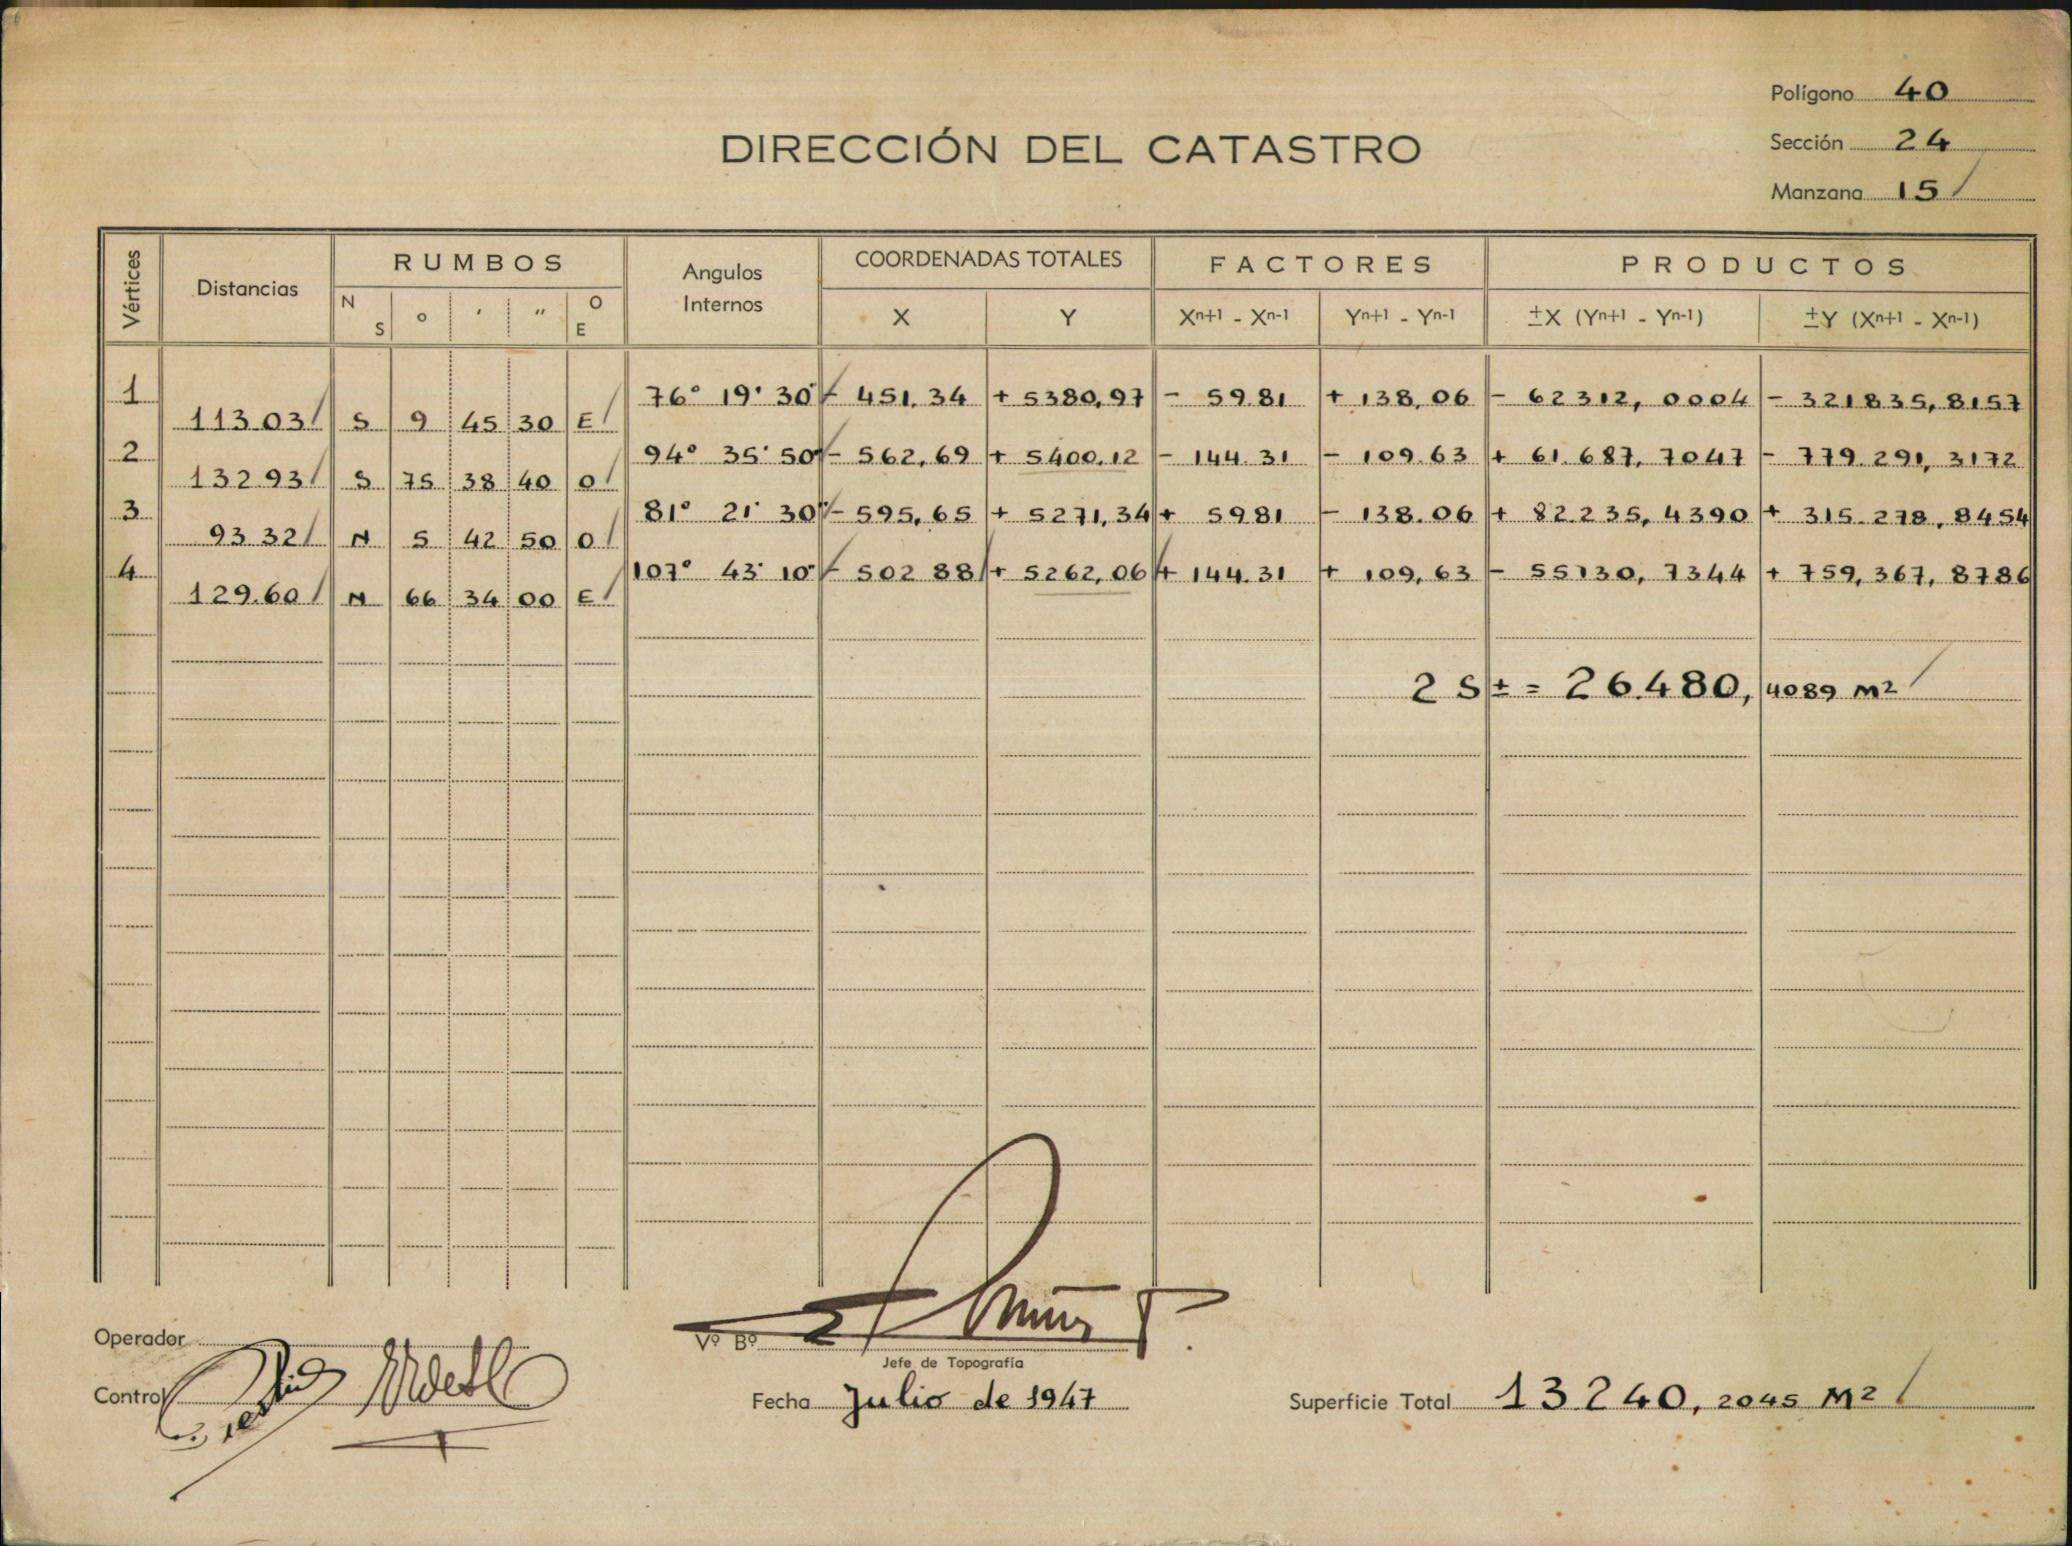 Polígono 40
DIRECCIÓN DEL CATASTRO
Sección 24
Manzana 15
Vértices Distancias RUMBOS Angulos Internos COORDENADAS TOTALES FACTORES PRODUCTOS
N S o ′ ″ O E X Y Xn+1 - Xn-1 Yn+1 - Yn-1 ±X (Yn+1 - Yn-1) ±Y (Xn+1 - Xn-1)
1 76° 19' 30" - 451,34 + 5380,97 - 59.81 + 138,06 - 62312,0004 - 321835,8157
113.03 S 9 45 30 E
2 94° 35' 50" - 562,69 + 5400,12 - 144.31 - 109.63 + 61.687,7047 - 779.291,3172
132.93 S 75 38 40 O
3 81° 21' 30" - 595,65 + 5271,34 + 59.81 - 138.06 + 82.235,4390 + 315.278,8454
93.32 N 5 42 50 O
4 107° 43' 10" - 502.88 + 5262,06 + 144.31 + 109,63 - 55130,7344 + 759,367,8786
129.60 N 66 34 00 E
2 S ± = 26.480,4089 M2
Operador
Vº Bº
Jefe de Topografía
Control
Fecha Julio de 1947
Superficie Total 13.240,2045 M2